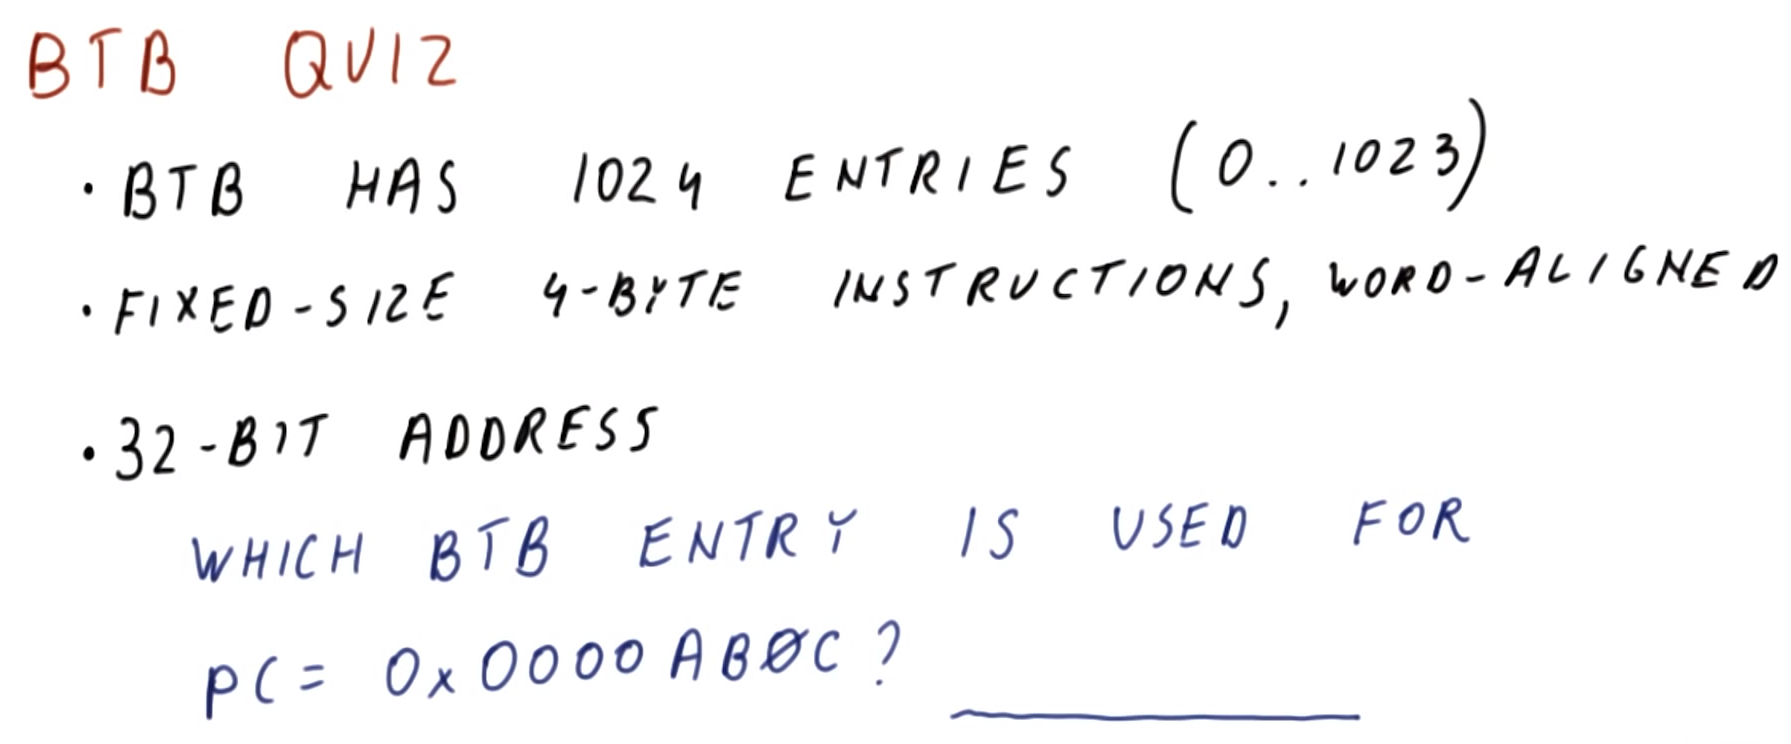 BTB QUIZ
• BTB HAS 1024 ENTRIES (0..1023)
• FIXED-SIZE 4-BYTE INSTRUCTIONS, WORD-ALIGNED
• 32-BIT ADDRESS
WHICH BTB ENTRY IS USED FOR
PC = 0x0000AB0C?